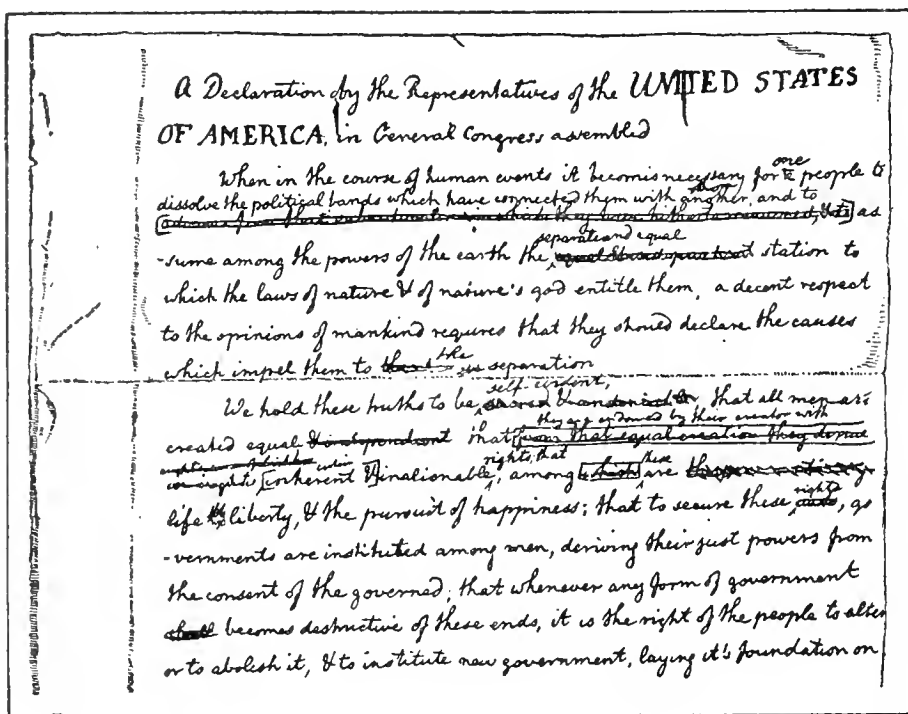 A Declaration by the Representatives of the UNITED STATES
OF AMERICA, in General Congress assembled
When in the course of human events it becomes necessary for one people to
dissolve the political bands which have connected them with another, and to as
separate and equal
-sume among the powers of the earth the station to
which the laws of nature & of nature's god entitle them, a decent respect
to the opinions of mankind requires that they should declare the causes
the
which impel them to separation
self-evident,
We hold these truths to be that all men are
they are endowed by their creator with
created equal & independent that from that equal creation they derive
rights, that these
inherent & inalienable, among which are
life & liberty, & the pursuit of happiness; that to secure these rights, go
-vernments are instituted among men, deriving their just powers from
the consent of the governed; that whenever any form of government
shall becomes destructive of these ends, it is the right of the people to alter
or to abolish it, & to institute new government, laying it's foundation on